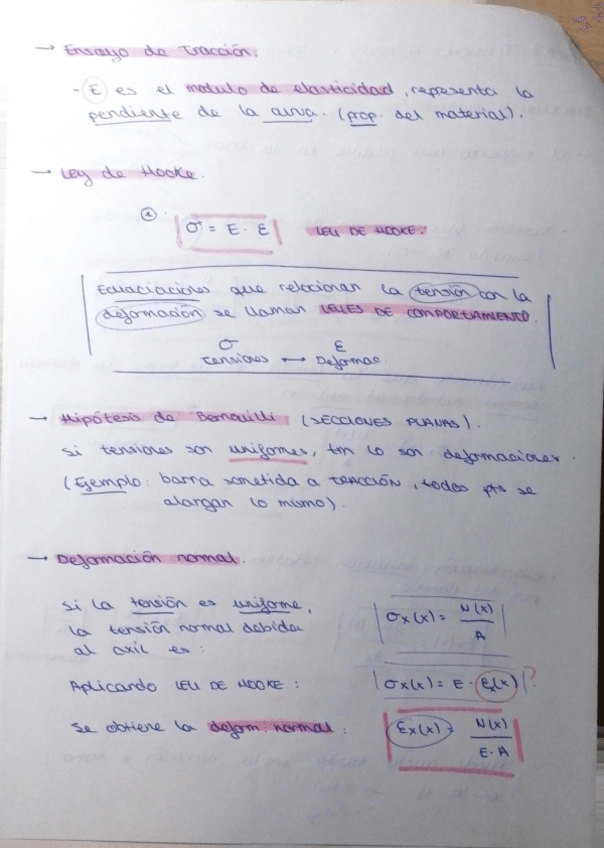 → Ensayo de Tracción.
- E es el modulo de elasticidad, representa la
pendiente de la curva. (prop. del material).
→ Ley de Hooke.
σ = E · ε LEY DE HOOKE.
Ecuaciaciones que relacionan la tensión con la
deformación se llaman LEYES DE COMPORTAMIENTO.
σ ε
Tensiones ↔ Deformac.
→ Hipótesis de Bernouilli (SECCIONES PLANAS).
Si tensiones son uniformes, tm lo son deformaciones.
(Ejemplo: barra sometida a TRACCIÓN, todos pts se
alargan lo mismo).
→ Deformación normal.
Si la tensión es uniforme,
la tensión normal debida
al axil es:
σx(x) = N(x)/A
Aplicando LEY DE HOOKE: σx(x) = E · εx(x) ?
Se obtiene la deform. normal: εx(x) = N(x)/E·A